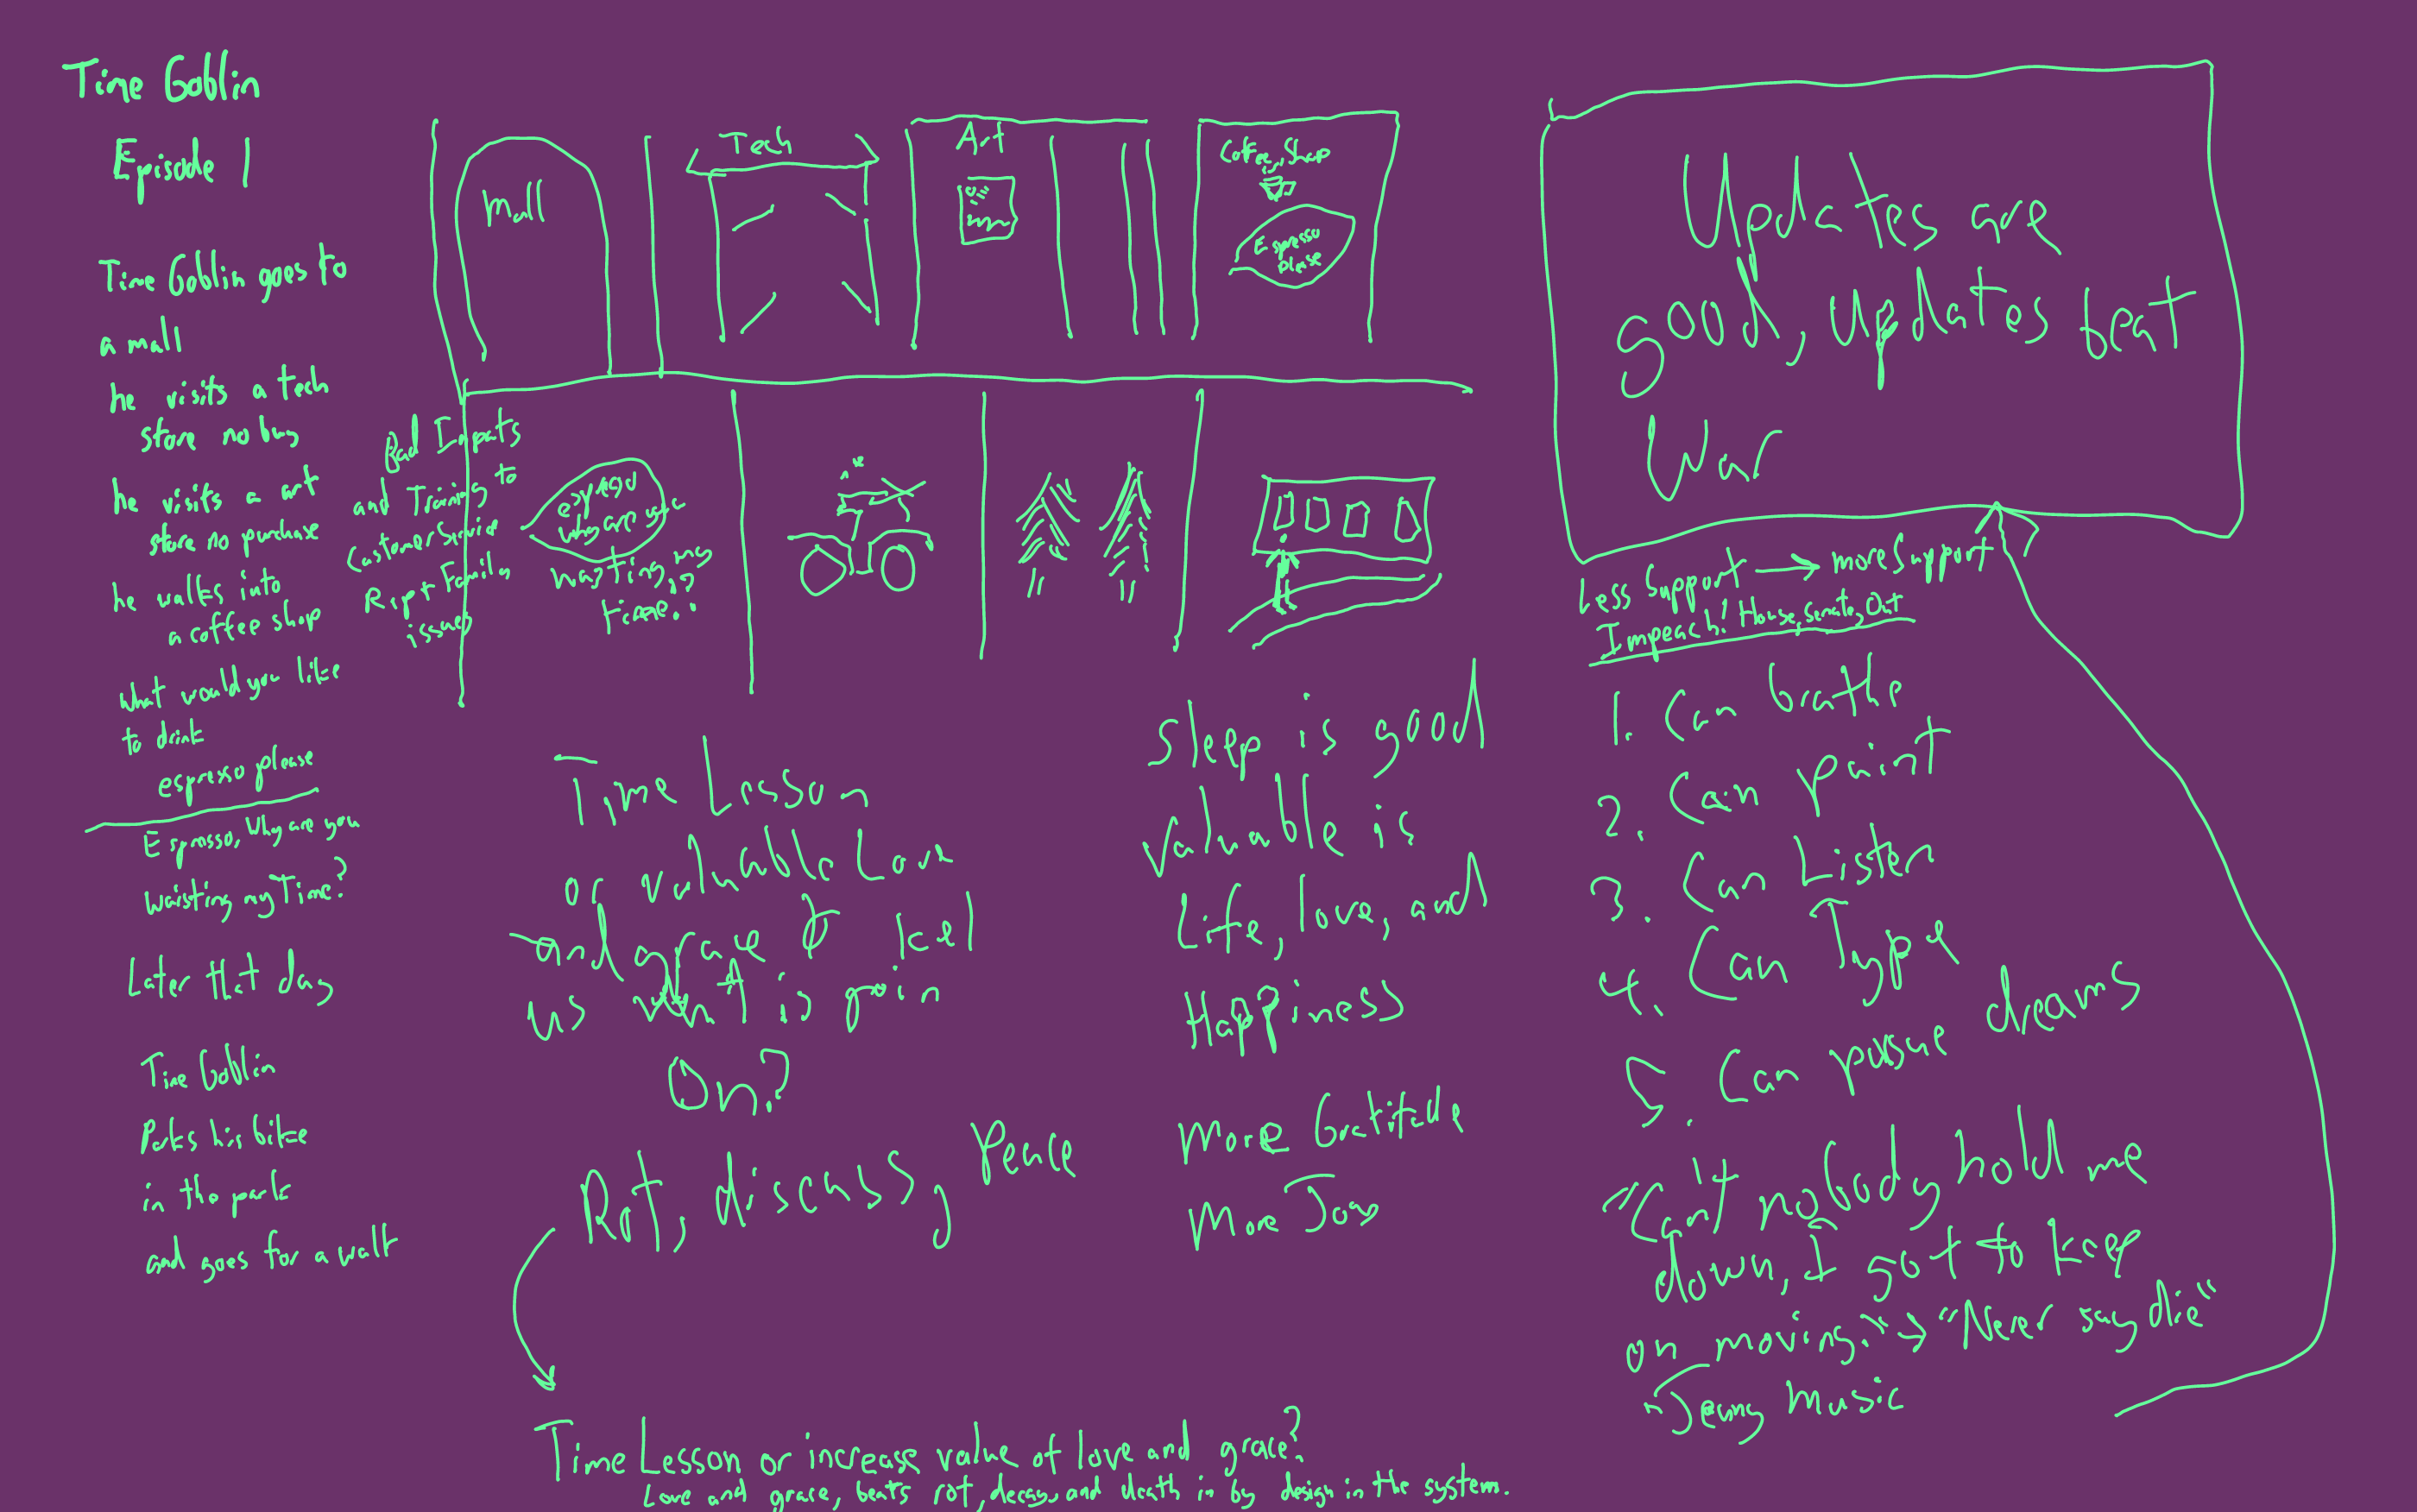 Time Goblin
Episode 1
Time Goblin goes to
a mall
he visits a tech
store no buy
he visits a art
store no purchase
he walks into
a coffee shop
what would you like
to drink
espresso please
Espresso, Why are you
waisting my Time?
Later that day
Time Goblin
Parks his bike
in the park
and goes for a walk
Mall
Tech
Art
Coffee Shop
Espresso
please
Bad Inputs
and Training to
Customer Service
Family
issues
why are you
wasting my
time??
Time Lesson
or valuable Love
and grace
us what is goin
On?
Rot, discuss, Peace
Sleep is good
Valuable is
Life, love, and
Happiness
More Gratitude
More Joy
Time Lesson or increase value of love and grace?
Love and grace, beats rot, decay, and death in by design in the system.
Updates are
good, Updates beat
War
Less Support → more Support
Impeach! House, Senate, Out
1. Can brathe
2. Can paint
3. Can Listen
4. Can Type
5. Can pursue dreams
"Can't nobody hold me
down, I got to keep
on moving." → "Never say die"
Music